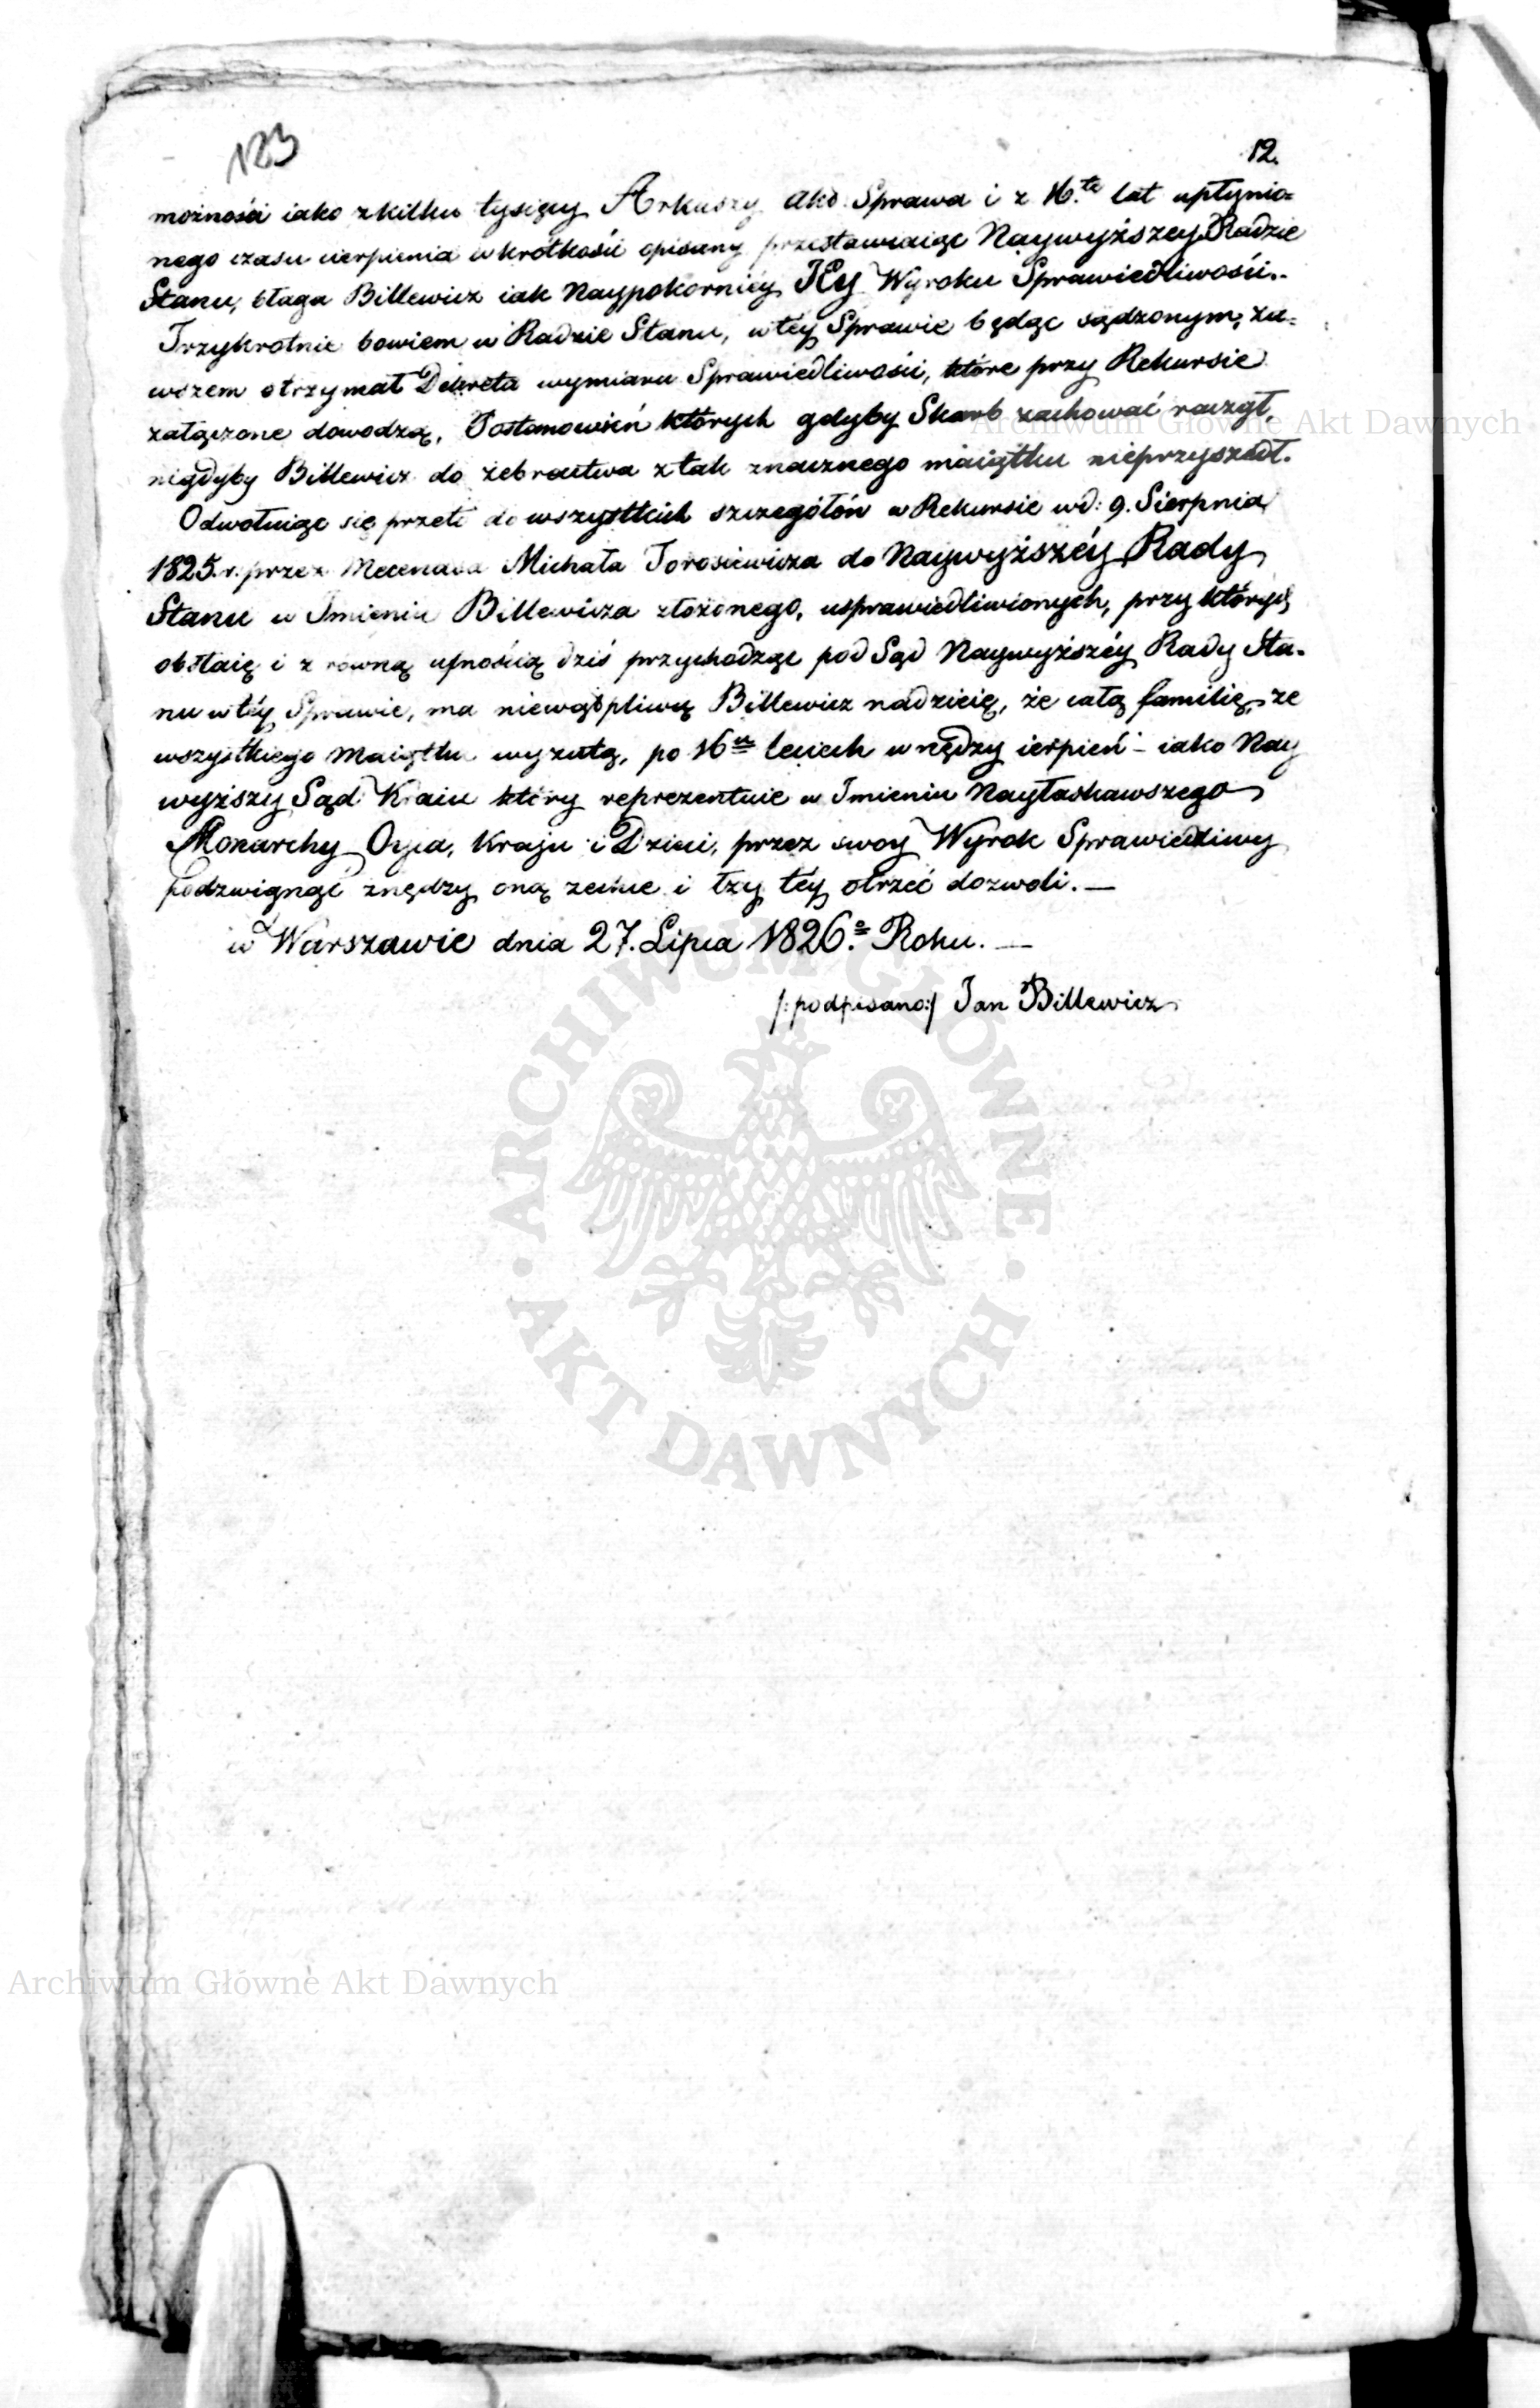 123
12.
możności iako z kilku tysięcy Arkuszy Akt Sprawa i z 16.te lat upłynio=
nego czasu cierpienia w krótkości opisany przestawuiąc Naywyższey Radzie
Stanu, błaga Billewicz iak Naypokorniéy JEy Wyroku Sprawiedliwości.-
Trzykrotnie bowiem w Radzie Stanu, w téy Sprawie będąc sądzonym, za=
wszem otrzymał Dekreta wymiaru Sprawiedliwości, które przy Rekursie
załączone dowodzą, Postanowień których gdyby Skarb zachować raczył,
nigdyby Billewicz do żebractwa z tak znacznego maiątku nieprzyszedł.
Odwołuiąc się przeto do wszystkich szczegółów w Rekursie w d: 9. Sierpnia
1825. r. przez Mecenasa Michała Torosiewicza do Naywyższéy Rady
Stanu w Imieniu Billewicza złożonego, usprawiedliwionych, przy których
obstaię i z równą ufnością dziś przychodząc pod Sąd Naywyższéy Rady Sta-
nu w téy Sprawie, ma niewątpliwą Billewicz nadzieię, że całą familię, ze
wszystkiego Maiątku wyzutą, po 16u leciech w nędzy cierpień - iako Nay
wyższy Sąd Kraiu który reprezentuie w Imieniu Nayłaskawszego
Monarchy Oyca, Kraju i Dzieci, przez swoy Wyrok Sprawiedliwy
podzwignąć z nędzy oną zechce i łzy téy otrzeć dozwoli. —
w Warszawie dnia 27. Lipca 1826.o Roku. —
/:podpisano:/ Jan Billewicz
Archiwum Główne Akt Dawnych
ARCHIWUM GŁÓWNE
AKT DAWNYCH
Archiwum Główne Akt Dawnych